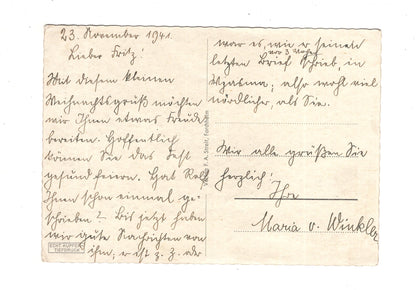 23. November 1941.
Lieber Fritz!
Mit diesem kleinen
Weihnachtsgruß möchten
wir Ihnen etwas Freude
bereiten. Hoffentlich
können Sie das Fest
gesund feiern. Hat
Ihnen schon einmal ge-
schrieben? Bis jetzt haben
wir gute Nachrichten von
ihm; er ist z. Z. oder
ECHT KUPFER-
TIEFDRUCK
Verlag F. A. Streit,
war es, wie er seinen
vor 3 Wochen
letzten Brief schrieb, in
Wjasma; also wohl viel
nördlicher, als Sie.
Wir alle grüßen Sie
herzlich!
Ihre
Maria v. Winkler